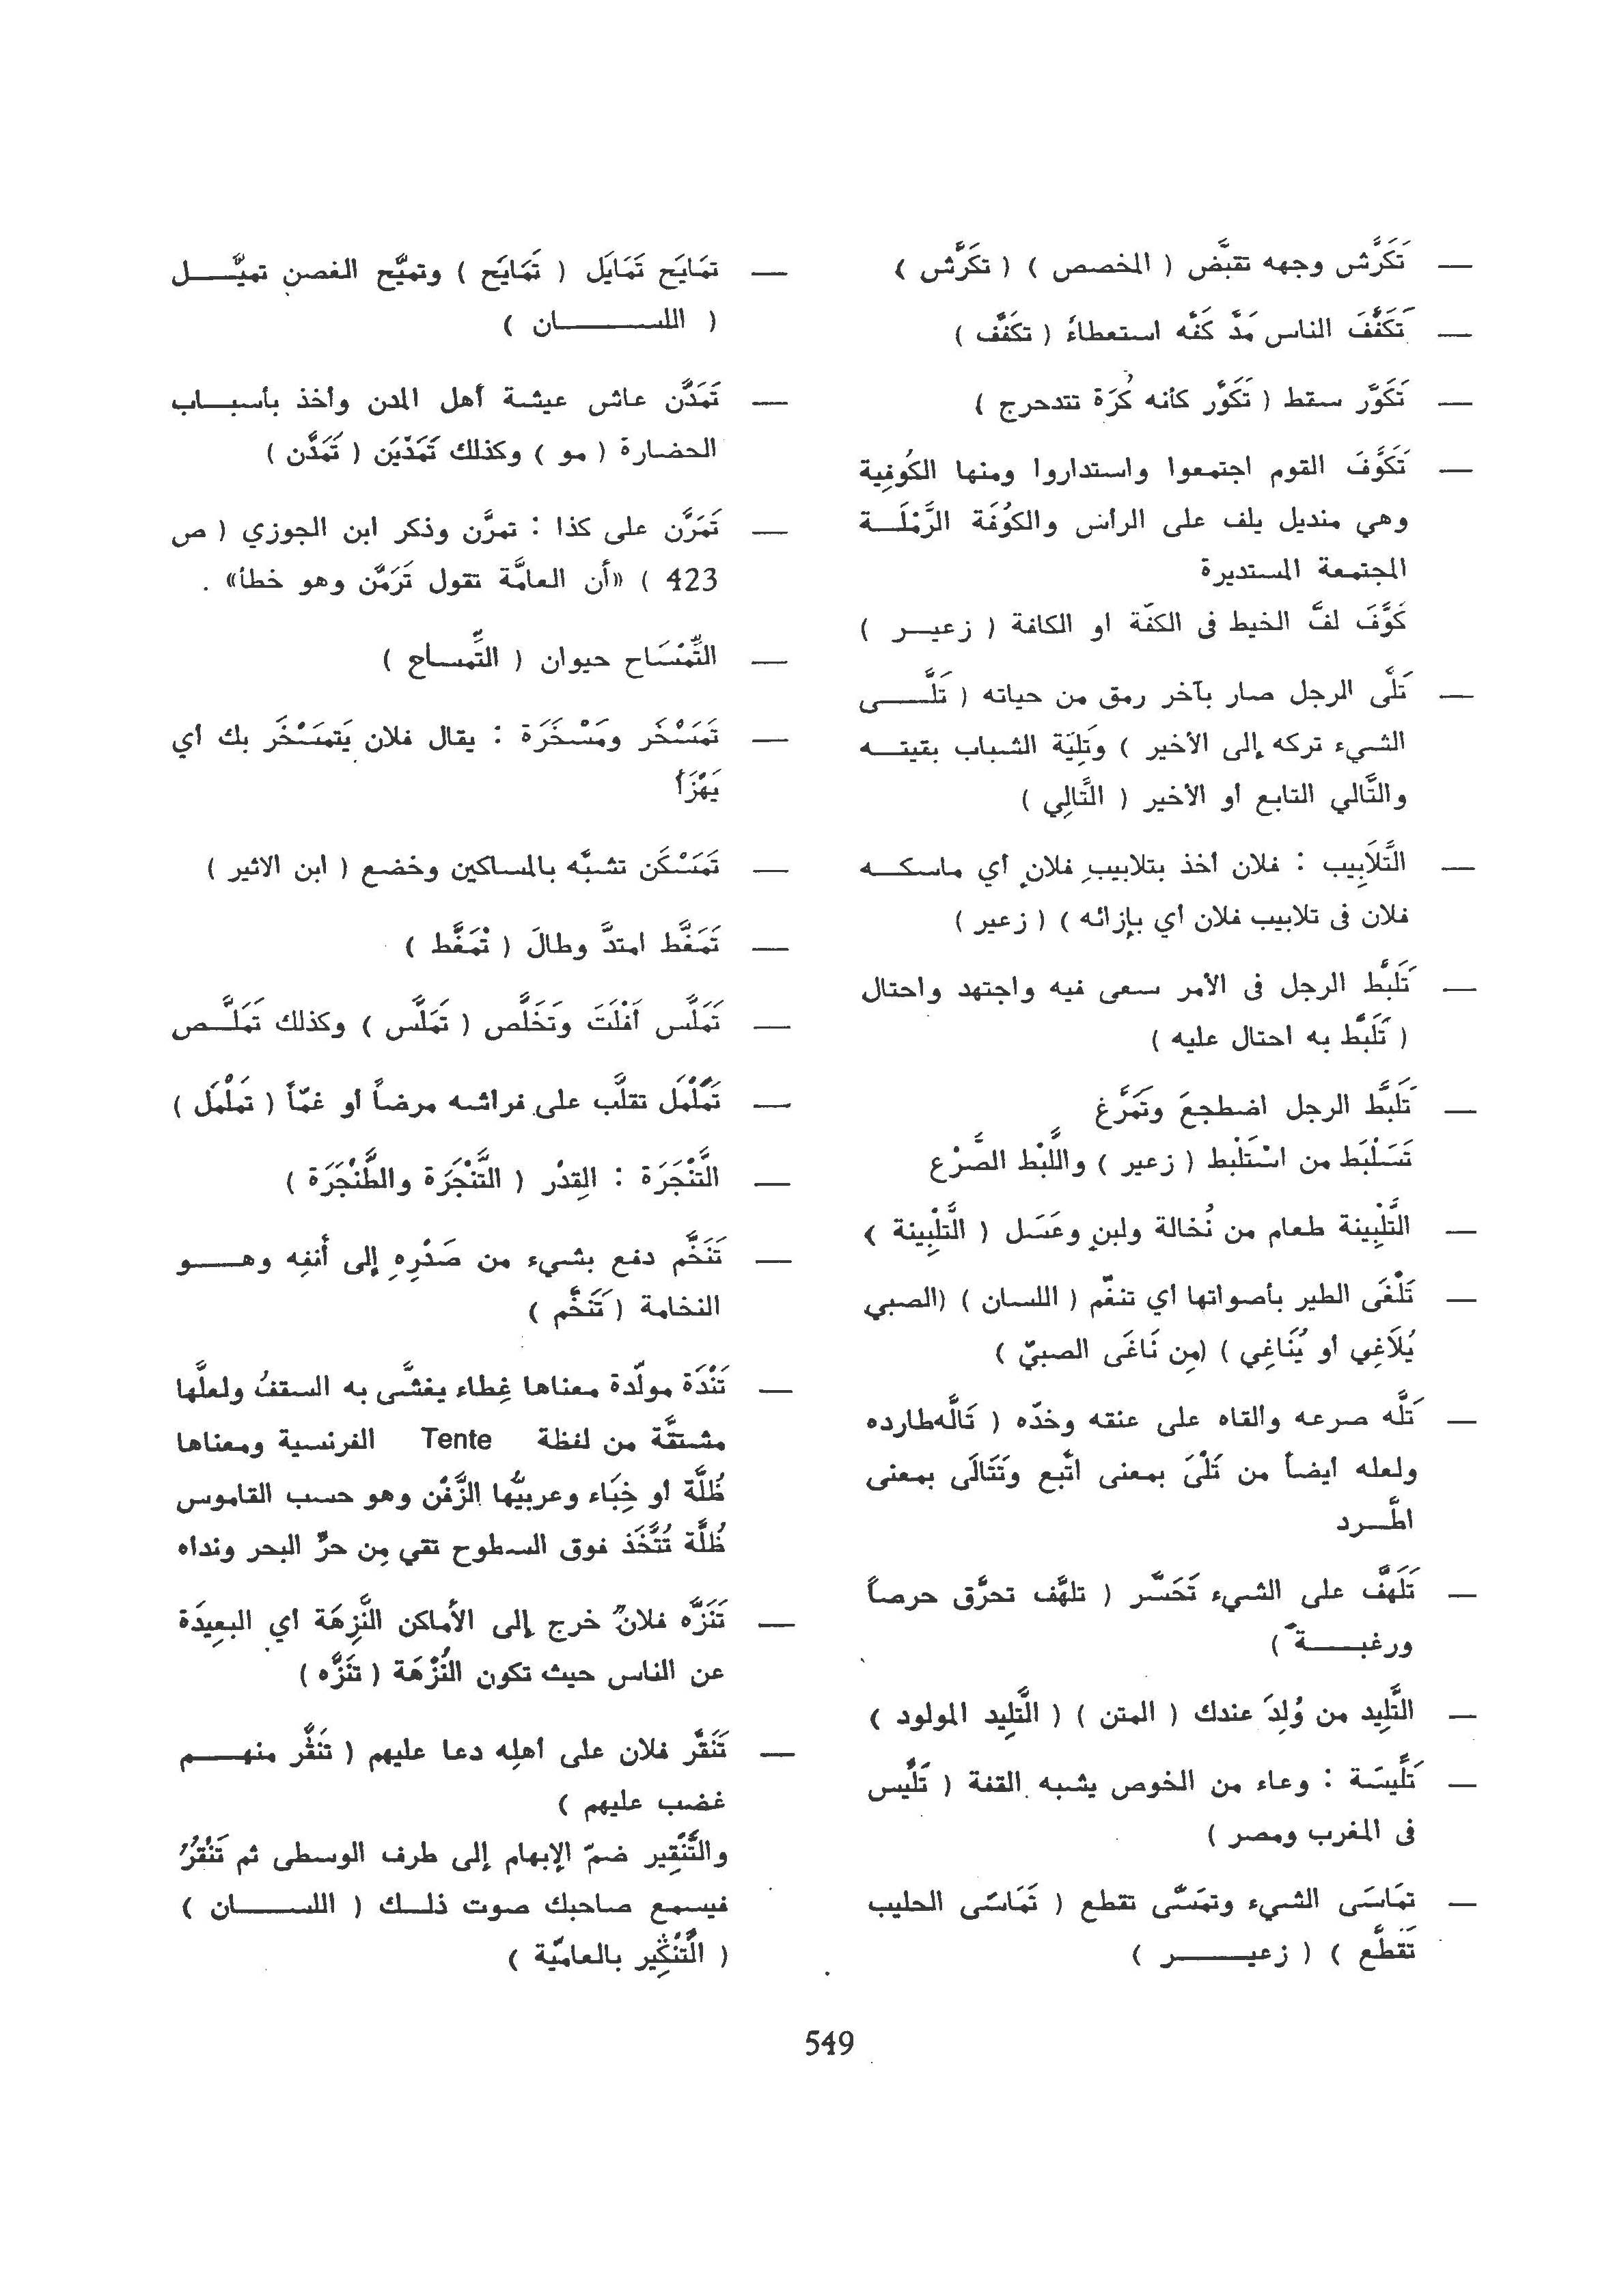 — تَكَرَّش وجهه تقبَّض ( المخصص ) ( تكَرَّش )
— تَكَفَّفَ الناس مَدَّ كَفَّه استعطاءً ( تكَفَّف )
— تَكَوَّر سقط ( تَكَوَّر كأنه كُرَة تتدحرج )
— تَكَوَّفَ القوم اجتمعوا واستداروا ومنها الكُوفِية
وهي منديل يلف على الرأس والكُوفَة الرَّمْلَـــة
المجتمعة المستديرة
كَوَّفَ لفَّ الخيط فى الكفّة او الكافة ( زعيـــر )
— تَلَّى الرجل صار بآخر رمق من حياته ( تَلَّـــــى
الشيء تركه إلى الأخير ) وتَلِيَة الشباب بقيتـــه
والتَّالي التابع أو الأخير ( التَّالِي )
— التَّلاَبِيب : فلان أخذ بتلابيبِ فلانٍ أي ماسكـــه
فلان فى تلابيب فلان أي بإزائه ) ( زعير )
— تَلَبَّط الرجل فى الأمر سعى فيه واجتهد واحتال
( تَلَبَّط به احتال عليه )
— تَلَبَّط الرجل اضطجعَ وتَمَرَّغ
تَسَلْبَط من اسْتَلْبط ( زعير ) واللَّبْط الصَّرْع
— التَّلْبِينة طعام من نُخالة ولبنٍ وعَسَل ( التَّلْبِينة )
— تَلْغَى الطير بأصواتها أي تنغّم ( اللسان ) (الصبي
يُلاَغِي أو يُنَاغِي ) (مِن نَاغَى الصبيّ )
— تَلَّه صرعه والقاه على عنقه وخدّه ( تَالَّه طارده
ولعله أيضاً من تَلْىَ بمعنى اتَّبع وتَتَالَى بمعنى
اطَّـــرد
— تَلَهَّف على الشيء تَحَسَّر ( تلهَّف تحرَّق حرصاً
ورغبـــــة )
— التَّلِيد من وُلِدَ عندك ( المتن ) ( التَّلِيد المولود )
— تَلِّيسَة : وعاء من الخوص يشبه القفة ( تَلِّيس
فى المغرب ومصر )
— تمَاسَى الشيء وتمَسَّى تقطع ( تَمَاسَى الحليب
تَقطَّع ) ( زعيـــــــر )
— تمَايَح تَمَايَل ( تَمَايَح ) وتميَّح الغصن تميَّـــــل
( اللســـــــــان )
— تَمَدَّن عاش عيشة أهل المدن وأخذ بأسبـــاب
الحضارة ( مو ) وكذلك تَمَدْيَن ( تَمَدَّن )
— تَمَرَّن على كذا : تمرَّن وذكر ابن الجوزي ( ص
423 ) «أن العامَّة تقول تَرَمَّن وهو خطأ» .
— التِّمْسَاح حيوان ( التِّمساح )
— تَمَسْخَر ومَسْخَرَة : يقال فلان يَتمَسْخَر بك أي
يَهْزَأ
— تَمَسْكَن تشبَّه بالمساكين وخضع ( ابن الاثير )
— تَمَغَّط امتدَّ وطالَ ( تْمَغَّط )
— تَمَلَّس أفْلَتَ وتَخَلَّص ( تَملَّس ) وكذلك تَملَّــص
— تَمَلْمَل تقلَّب على فراشه مرضاً أو غمّاً ( تَملْمَل )
— التَّنْجَرَة : القِدْر ( التَّنْجَرَة والطَّنْجَرَة )
— تَنَخَّم دفع بشيء من صَدْرِهِ إلى أنفِه وهــــو
النخامة ( تَنَخَّم )
— تَنْدَة مولّدة معناها غِطاء يغشَّى به السقفُ ولعلَّها
مشتقَّة من لفظة Tente الفرنسية ومعناها
ظُلَّة أو خِبَاء وعربيُّها الزَّفْن وهو حسب القاموس
ظُلَّة تُتَّخَذ فوق السطوح تقي مِن حرِّ البحر ونداه
— تَنَزَّه فلانٌ خرج إلى الأماكن النَّزِهَة أي البعِيدَة
عن الناس حيث تكون النُزْهَة ( تنَزَّه )
— تَنَقَّر فلان على أهلِه دعا عليهم ( تنقَّر منهـــم
غضب عليهم )
والتَّنْقِير ضمّ الإبهام إلى طرف الوسطى ثم تَنْقُرُ
فيسمع صاحبك صوت ذلــك ( اللســـــان )
( التَّنْكِير بالعاميّة )
549